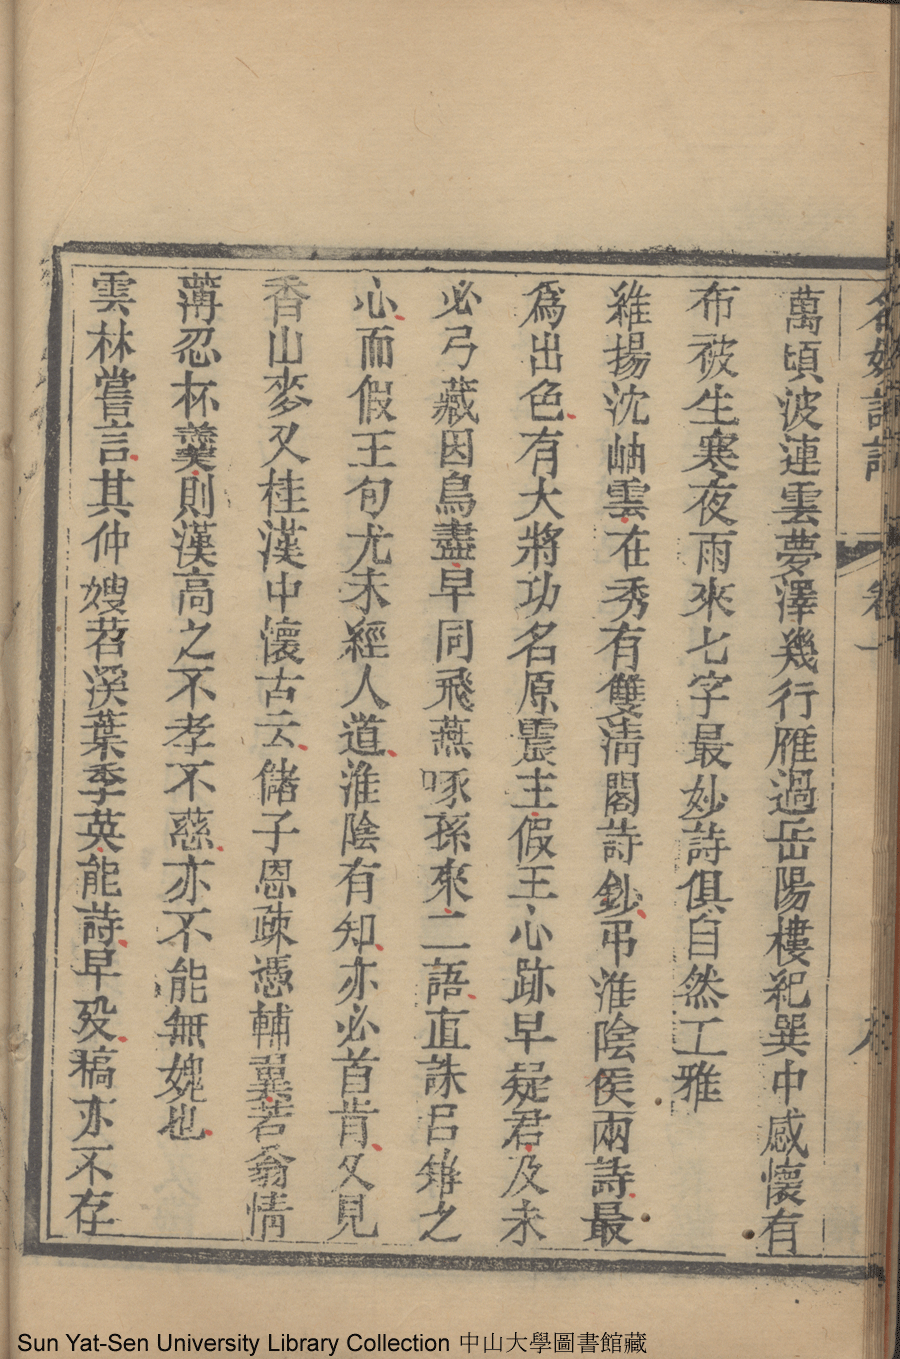 名媛詩話 卷一
萬頃波連雲夢澤幾行雁過岳陽樓紀巽中感懷有
布被生寒夜雨來七字最妙詩俱自然工雅
維揚沈岫雲在秀有雙清閣詩鈔弔淮陰侯兩詩最
爲出色有大將功名原震主假王心跡早疑君及未
必弓藏因鳥盡早同飛燕啄孫來二語直誅呂雉之
心而假王句尤未經人道淮陰有知亦必首肯又見
香山麥又桂漢中懷古云儲子恩疎憑輔翼若翁情
薄忍杯羹則漢高之不孝不慈亦不能無媿也
雲林嘗言其仲嫂苕溪葉季英能詩早歿稿亦不存
Sun Yat-Sen University Library Collection 中山大學圖書館藏